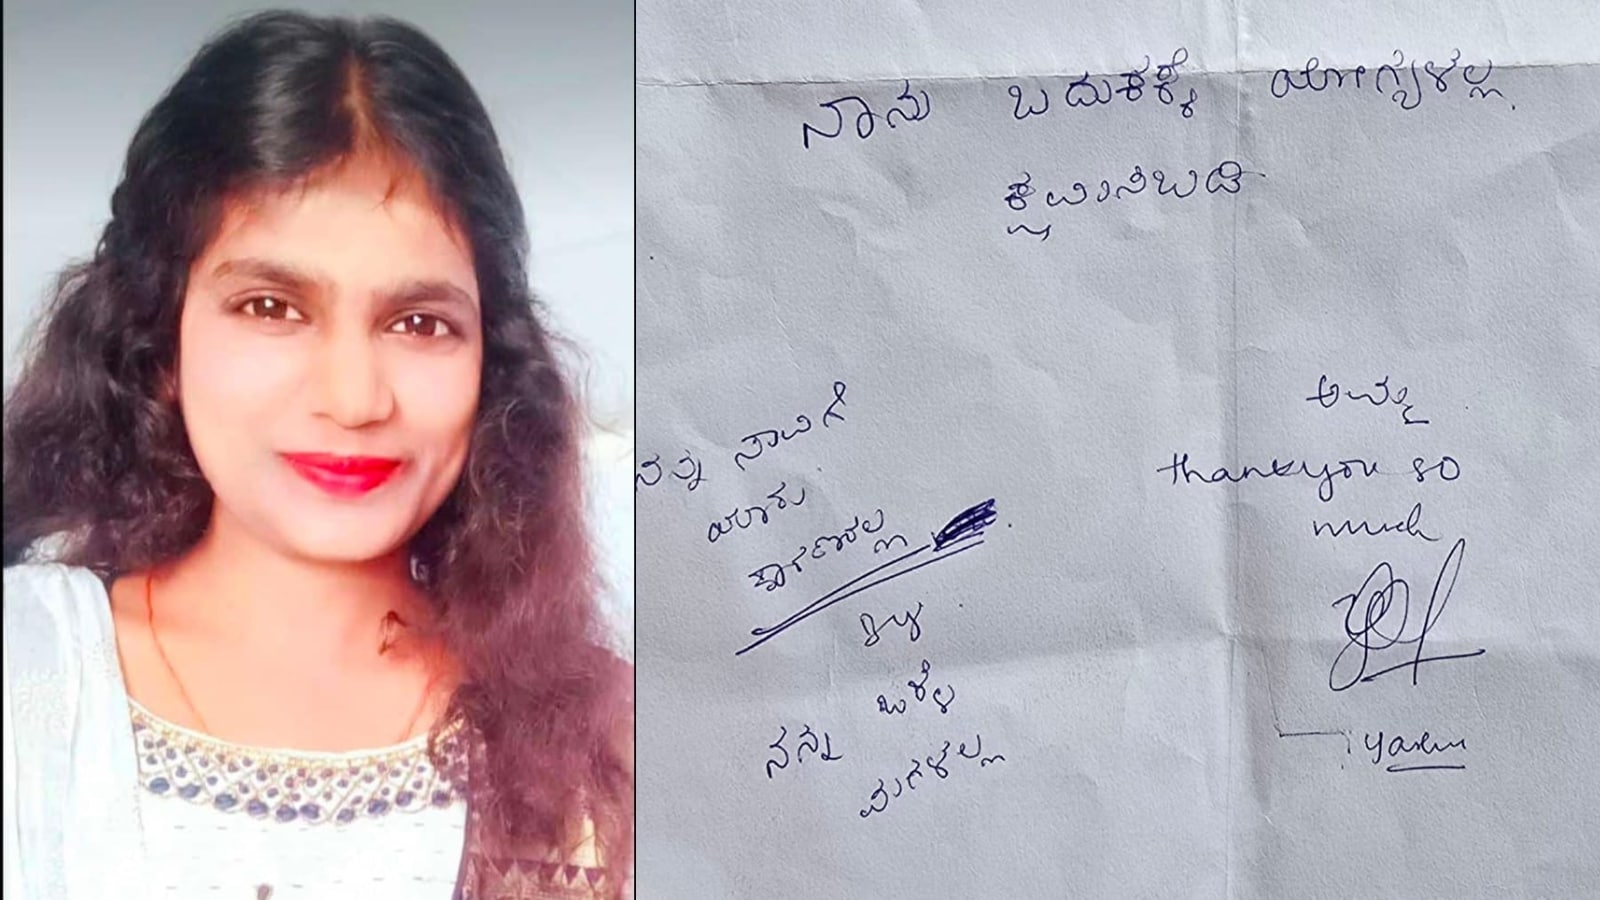 ನಾನು ಬದುಕಕ್ಕೆ ಯೋಗ್ಯಳಲ್ಲ.
ಕ್ಷಮಿಸಿಬಿಡಿ
ನನ್ನ ಸಾವಿಗೆ
ಯಾರು
ಕಾರಣರಲ್ಲ
ಒಳ್ಳೆ
ನನ್ನ
ಮಗಳಲ್ಲ
ಅಮ್ಮ
thankyou so
much